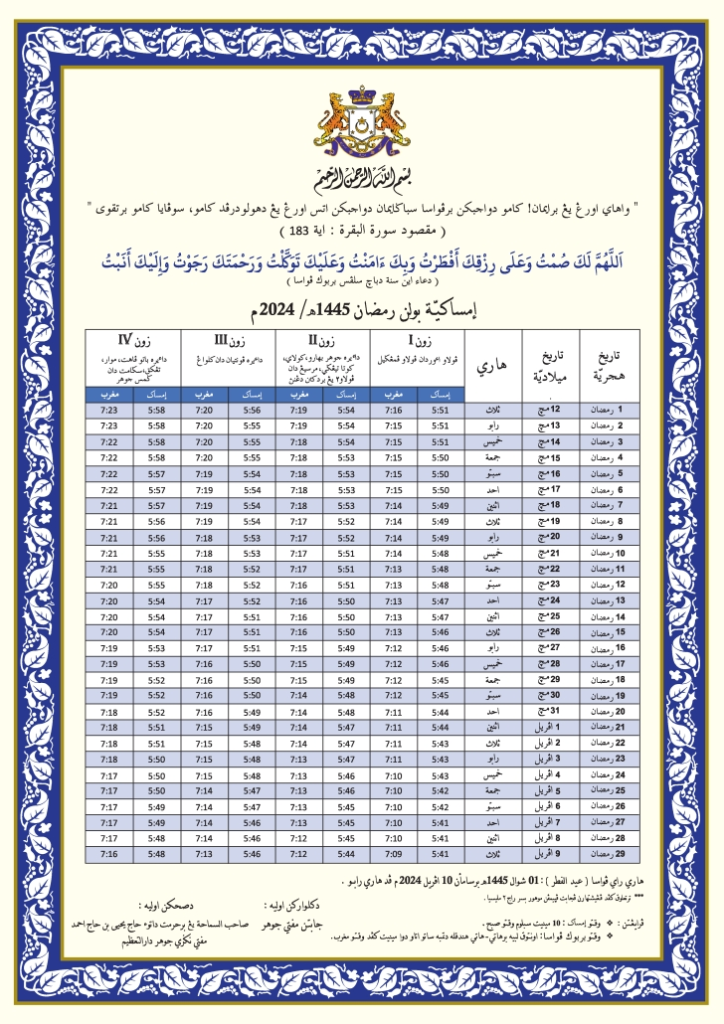 بسم الله الرحمن الرحيم
" واهاي اورڠ يڠ برايمان! كامو دواجبكن برڤواسا سباݢايمان دواجبكن اتس اورڠ يڠ دهولودرڤد كامو، سوڤايا كامو برتقوى "
( مقصود سورة البقرة : اية 183 )
اَللَّهُمَّ لَكَ صُمْتُ وَعَلَى رِزْقِكَ أَفْطَرْتُ وَبِكَ ءَامَنْتُ وَعَلَيْكَ تَوَكَّلْتُ وَرَحْمَتَكَ رَجَوْتُ وَإِلَيْكَ أَنَبْتُ
( دعاء اين سنة دباچ سلڤس بربوك ڤواسا )
إمساكيّة بولن رمضان 1445هـ/ 2024م
تاريخ هجريّة تاريخ ميلاديّة هاري زون I زون II زون III زون IV
ڤولاو اور دان ڤولاو ڤمڠݢيل
دايره جوهر بهارو، كولاي،
كوتا تيڠݢي، مرسيڠ دان
دايره قونتيان دان كلواڠ
دايره باتو ڤاهت، موار،
تڠكق، سݢامت دان
إمساك مغرب إمساك مغرب إمساك مغرب إمساك مغرب
1 رمضان 12 مچ ثلاث 5:51 7:16 5:54 7:19 5:56 7:20 5:58 7:23
2 رمضان 13 مچ رابو 5:51 7:15 5:54 7:19 5:55 7:20 5:58 7:23
3 رمضان 14 مچ خميس 5:51 7:15 5:54 7:18 5:55 7:20 5:58 7:22
4 رمضان 15 مچ جمعة 5:50 7:15 5:53 7:18 5:55 7:20 5:58 7:22
5 رمضان 16 مچ سبتو 5:50 7:15 5:53 7:18 5:54 7:19 5:57 7:22
6 رمضان 17 مچ احد 5:50 7:15 5:53 7:18 5:54 7:19 5:57 7:22
7 رمضان 18 مچ اثنين 5:49 7:14 5:53 7:18 5:54 7:19 5:57 7:21
8 رمضان 19 مچ ثلاث 5:49 7:14 5:52 7:17 5:54 7:19 5:56 7:21
9 رمضان 20 مچ رابو 5:49 7:14 5:52 7:17 5:53 7:18 5:56 7:21
10 رمضان 21 مچ خميس 5:48 7:14 5:51 7:17 5:53 7:18 5:55 7:21
11 رمضان 22 مچ جمعة 5:48 7:13 5:51 7:17 5:52 7:18 5:55 7:21
12 رمضان 23 مچ سبتو 5:48 7:13 5:51 7:16 5:52 7:18 5:55 7:20
13 رمضان 24 مچ احد 5:47 7:13 5:50 7:16 5:52 7:17 5:54 7:20
14 رمضان 25 مچ اثنين 5:47 7:13 5:50 7:16 5:51 7:17 5:54 7:20
15 رمضان 26 مچ ثلاث 5:46 7:13 5:50 7:16 5:51 7:17 5:54 7:20
16 رمضان 27 مچ رابو 5:46 7:12 5:49 7:15 5:51 7:17 5:53 7:19
17 رمضان 28 مچ خميس 5:46 7:12 5:49 7:15 5:50 7:16 5:53 7:19
18 رمضان 29 مچ جمعة 5:45 7:12 5:49 7:15 5:50 7:16 5:52 7:19
19 رمضان 30 مچ سبتو 5:45 7:12 5:48 7:14 5:50 7:16 5:52 7:19
20 رمضان 31 مچ احد 5:44 7:11 5:48 7:14 5:49 7:16 5:52 7:18
21 رمضان 1 اڤريل اثنين 5:44 7:11 5:47 7:14 5:49 7:15 5:51 7:18
22 رمضان 2 اڤريل ثلاث 5:43 7:11 5:47 7:14 5:48 7:15 5:51 7:18
23 رمضان 3 اڤريل رابو 5:43 7:11 5:47 7:13 5:48 7:15 5:50 7:18
24 رمضان 4 اڤريل خميس 5:43 7:10 5:46 7:13 5:48 7:15 5:50 7:17
25 رمضان 5 اڤريل جمعة 5:42 7:10 5:46 7:13 5:47 7:14 5:50 7:17
26 رمضان 6 اڤريل سبتو 5:42 7:10 5:45 7:13 5:47 7:14 5:49 7:17
27 رمضان 7 اڤريل احد 5:41 7:10 5:45 7:13 5:46 7:14 5:49 7:17
28 رمضان 8 اڤريل اثنين 5:41 7:10 5:45 7:12 5:46 7:14 5:48 7:17
29 رمضان 9 اڤريل ثلاث 5:41 7:09 5:44 7:12 5:46 7:13 5:48 7:16
هاري راي ڤواسا ( عيد الفطر ) : 01 شوال 1445هـ برسامأن 10 اڤريل 2024م ڤد هاري رابو .
*** ترعلوق كڤد ڤڠيشتهارن ڤجابت ڤڽيمڤن موهور بسر راج٢ مليسيا .
ڤرايڠتن : ❖ وقتو إمساك : 10 مينيت سبلوم وقتو صبح .
❖ وقتو بربوك ڤواسا : اونتوق لبيه برهاتي-هاتي هندقله دتمبه ساتو اتاو دوا مينيت كڤد وقتو مغرب.
دكلواركن اوليه :
جابتن مفتي جوهر
دصحكن اوليه :
صاحب السماحة يڠ برحرمت داتوء حاج يحيى بن حاج احمد
مفتي نݢري جوهر دارالتعظيم